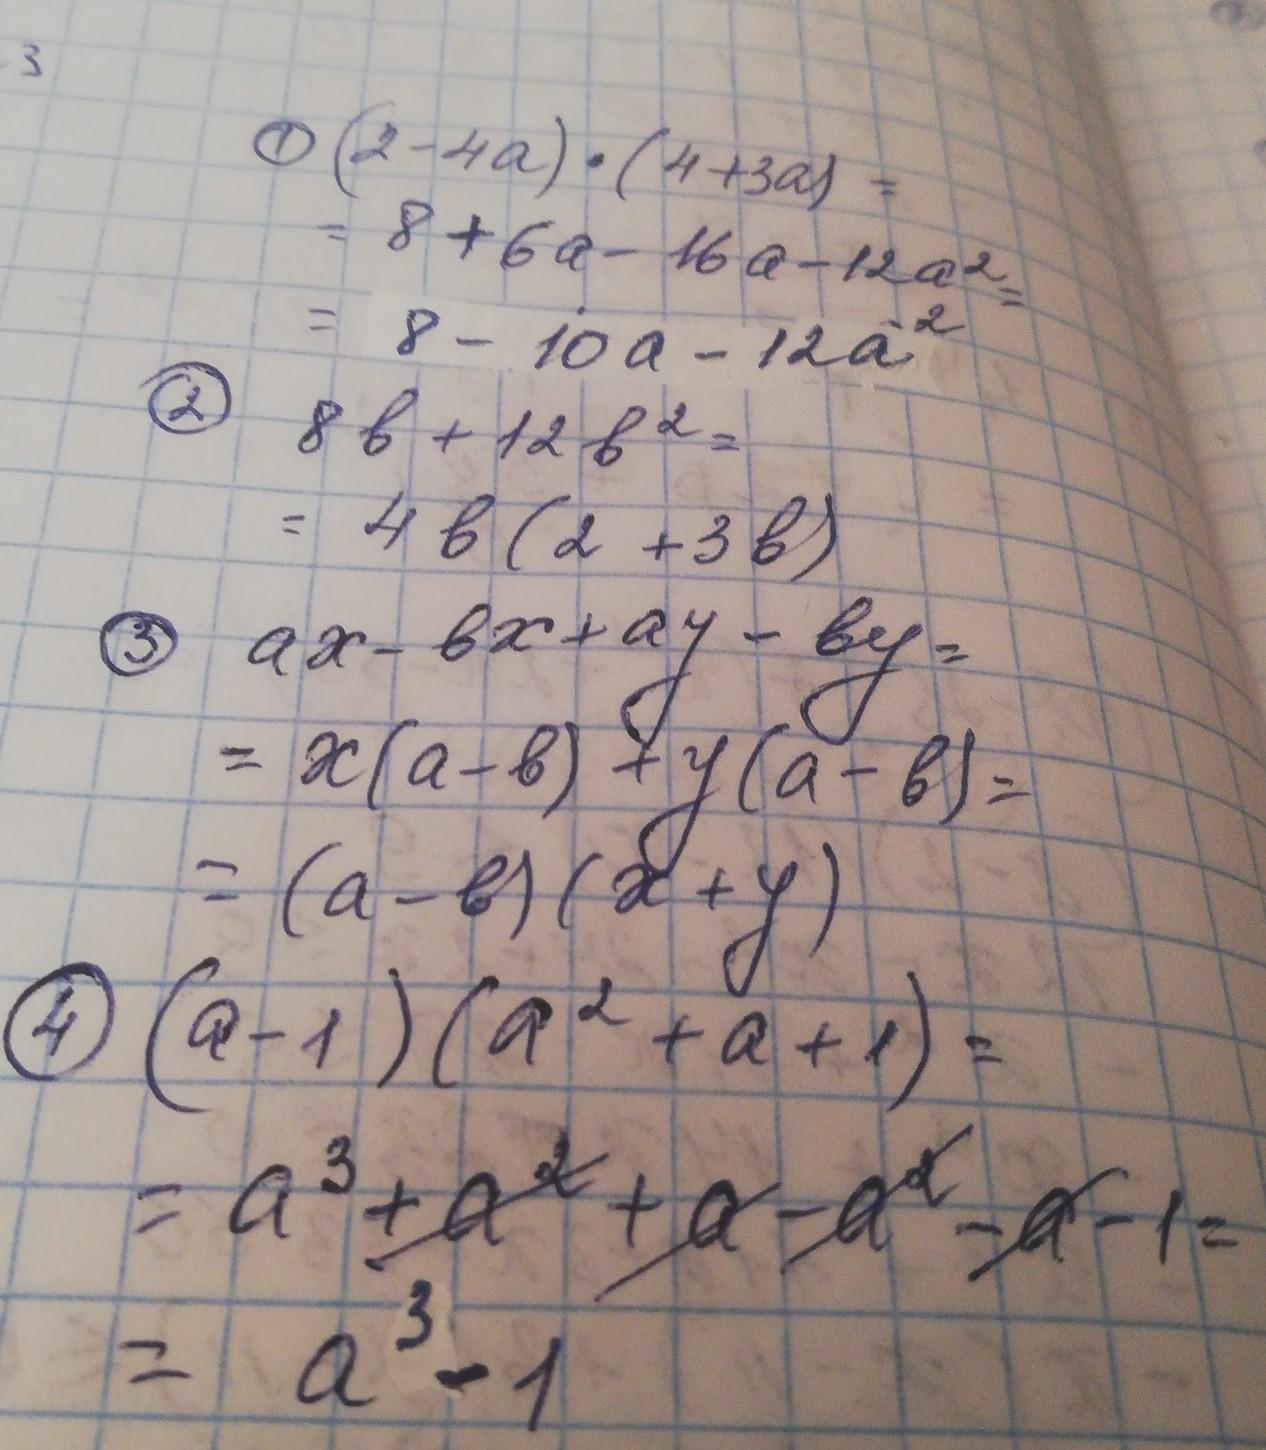 3
① (2-4a)·(4+3a) =
= 8+6a-16a-12a²=
= 8-10a-12a²
② 8b+12b²=
= 4b(2+3b)
③ ax-bx+ay-by=
= x(a-b)+y(a-b)=
= (a-b)(x+y)
④ (a-1)(a²+a+1)=
= a³+a²+a-a²-a-1=
= a³-1